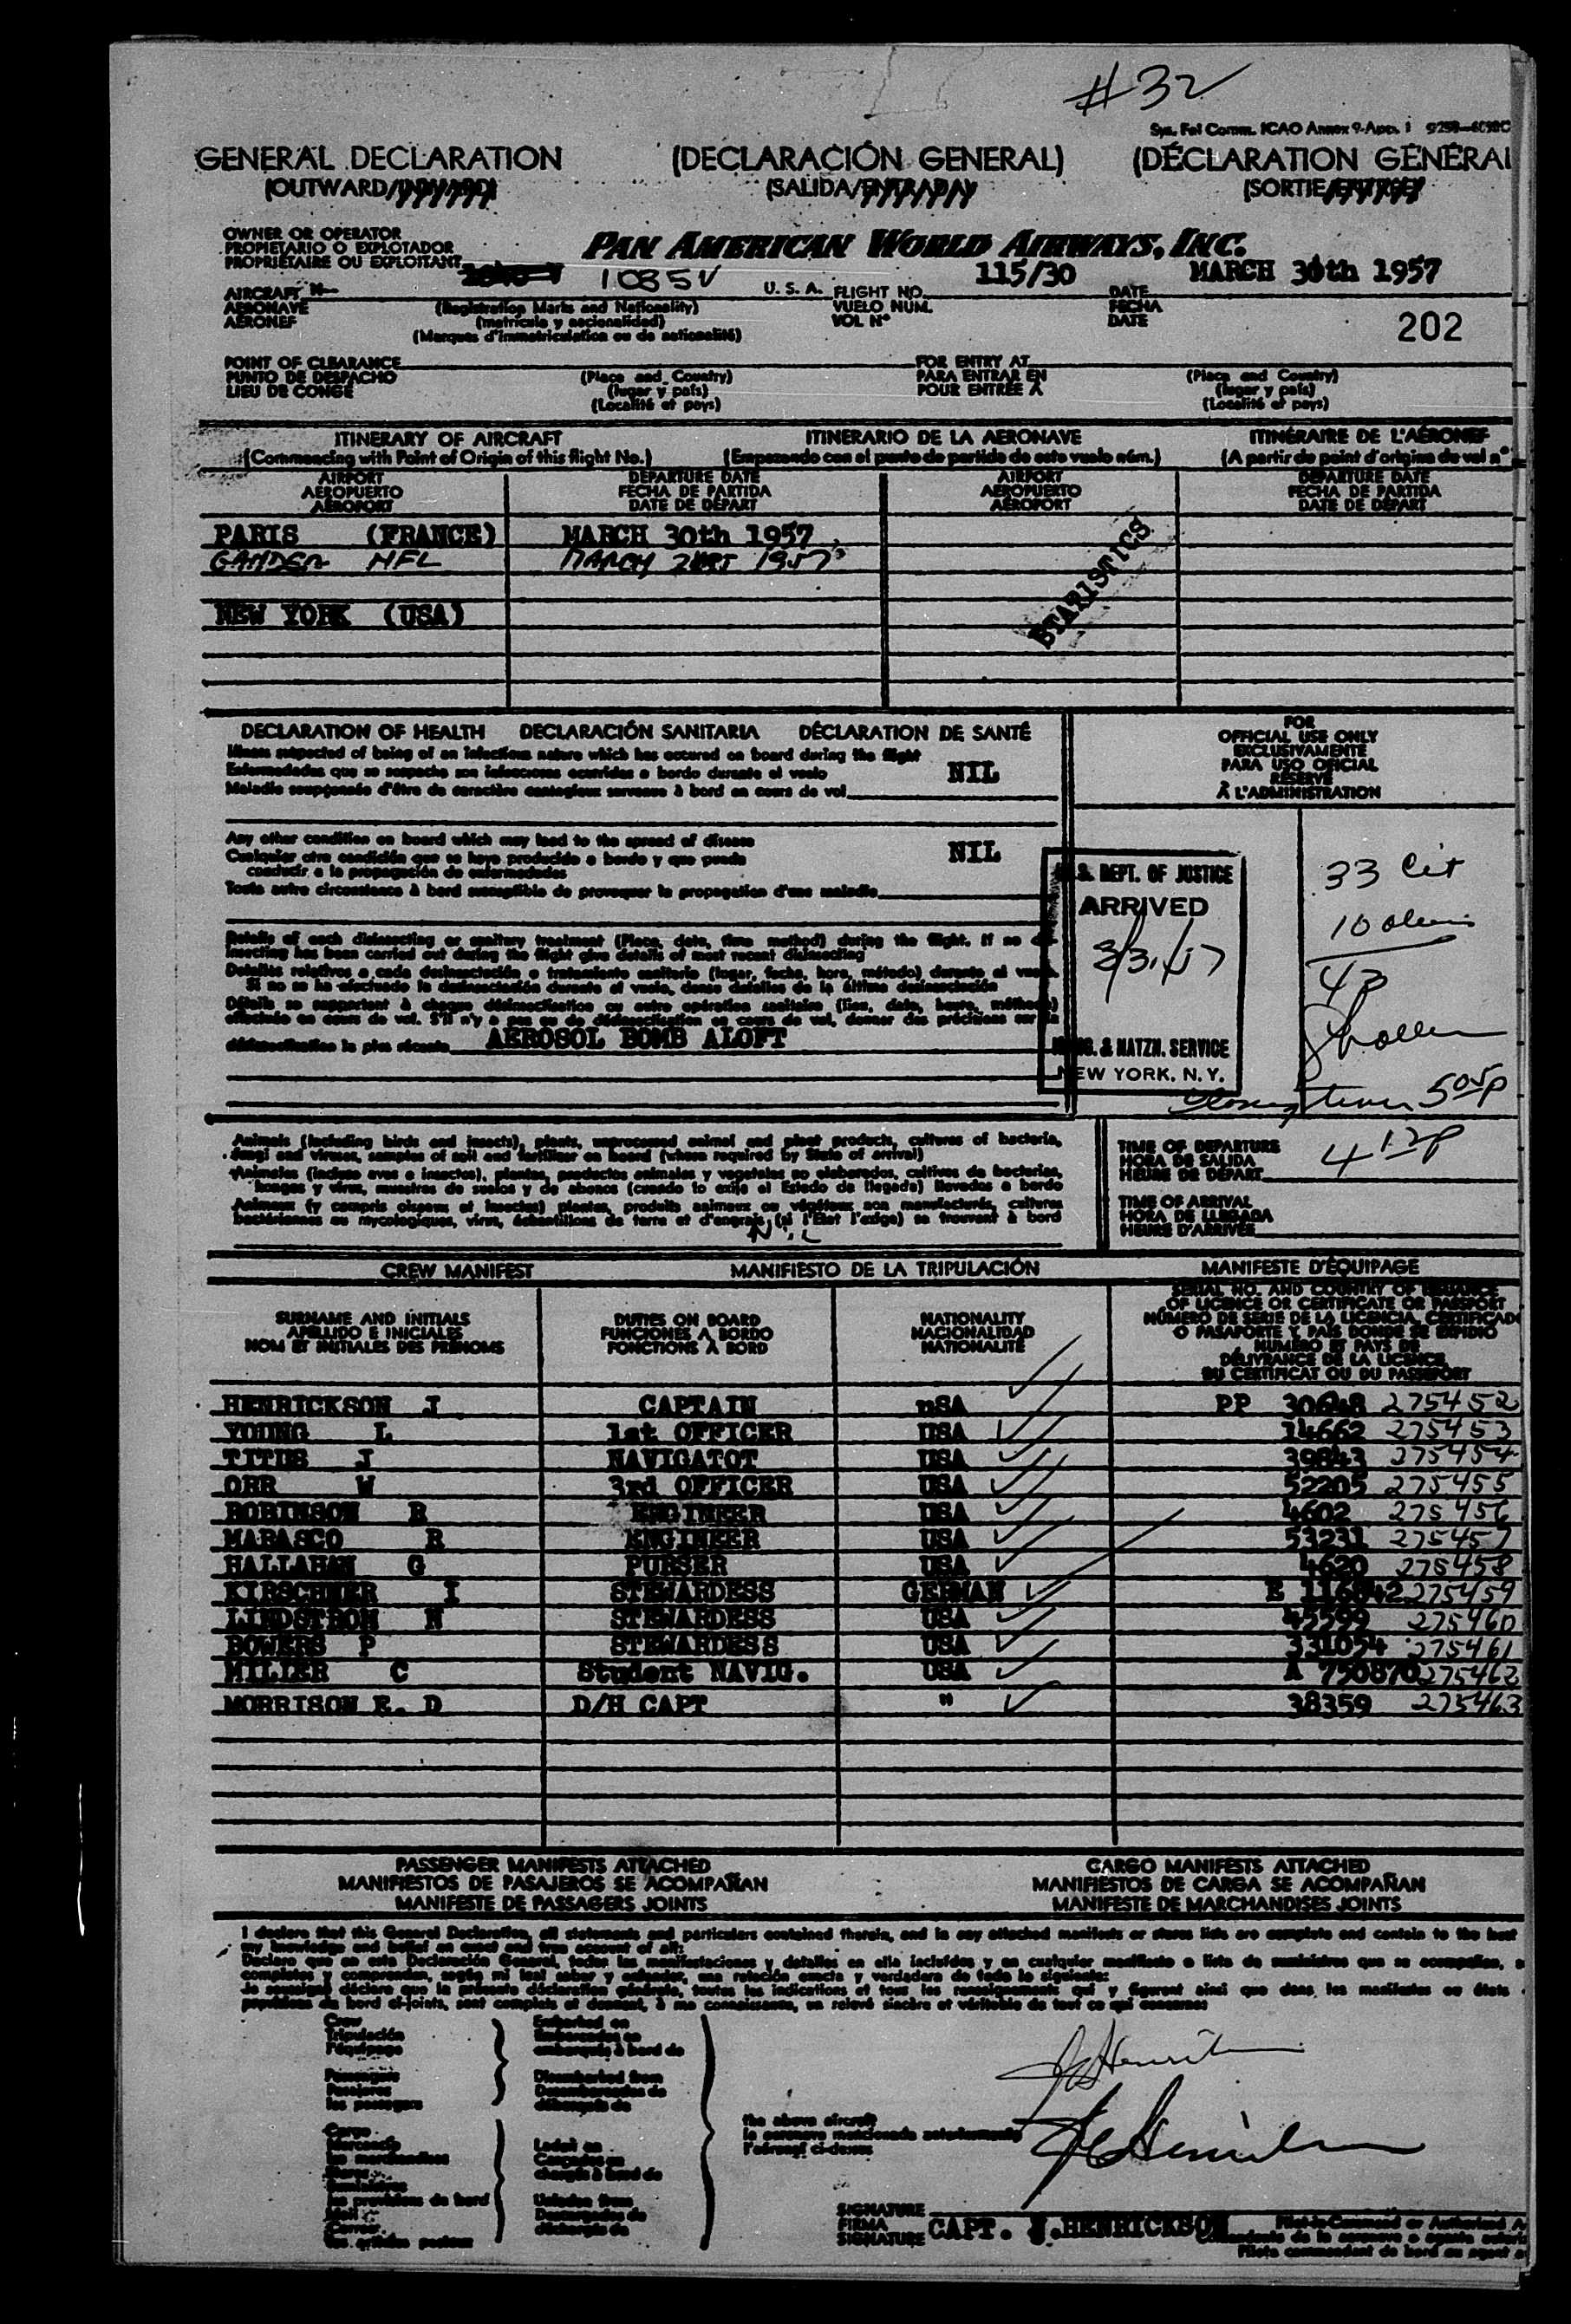 #32
Sys. Fal Comm. ICAO Annex 9-App. 1
GENERAL DECLARATION (DECLARACIÓN GENERAL) (DÉCLARATION GÉNÉRAL
(OUTWARD/INWARD) (SALIDA/ENTRADA) (SORTIE/ENTRÉE)
OWNER OR OPERATOR
PROPIETARIO O EXPLOTADOR
PROPRIÉTAIRE OU EXPLOITANT
PAN AMERICAN WORLD AIRWAYS, INC.
AIRCRAFT N- 1085V U. S. A. FLIGHT NO. 115/30 DATE MARCH 30th 1957
AERONAVE (Registration Marks and Nationality) VUELO NUM. FECHA
AÉRONEF (matrícula y nacionalidad) VOL Nº DATE
(Marques d'immatriculation ou de nationalité)
202
POINT OF CLEARANCE FOR ENTRY AT
PUNTO DE DESPACHO (Place and Country) PARA ENTRAR EN (Place and Country)
LIEU DE CONGÉ (lugar y país) POUR ENTRÉE À (lugar y país)
(Localité et pays) (Localité et pays)
ITINERARY OF AIRCRAFT ITINERARIO DE LA AERONAVE ITINÉRAIRE DE L'AÉRONEF
(Commencing with Point of Origin of this flight No.) (Empezando con el punto de partida de este vuelo núm.) (A partir de point d'origine de vol nº
AIRPORT DEPARTURE DATE AIRPORT DEPARTURE DATE
AEROPUERTO FECHA DE PARTIDA AEROPUERTO FECHA DE PARTIDA
AÉROPORT DATE DE DÉPART AÉROPORT DATE DE DÉPART
PARIS (FRANCE) MARCH 30th 1957
GANDER NFL MARCH 1957
NEW YORK (USA)
STATISTICS
DECLARATION OF HEALTH DECLARACIÓN SANITARIA DÉCLARATION DE SANTÉ
Illness suspected of being of an infectious nature which has occured on board during the flight
Enfermedades que se sospecha son infecciosas ocurridas a bordo durante el vuelo NIL
Maladie soupçonnée d'être de caractère contagieux survenue à bord en cours de vol
Any other condition on board which may lead to the spread of disease
Cualquier otra condición que se haya producido a bordo y que pueda NIL
conducir a la propagación de enfermedades
Toute autre circonstance à bord susceptible de provoquer la propagation d'une maladie
Details of each disinsecting or sanitary treatment (Place, date, time method) during the flight. If no
insecting has been carried out during the flight give details of most recent disinsecting
Detalles relativos a cada desinsectación o tratamiento sanitario (lugar, fecha, hora, método) durante el vuelo.
Si no se ha efectuado la desinsectación durante el vuelo, dense detalles de la última desinsectación
Détails se rapportant à chaque désinsectisation ou autre opération sanitaire (lieu, date, heure, méthode)
effectuée en cours de vol. S'il n'y a pas eu de désinsectisation en cours de vol, donner des précisions sur la
désinsectisation la plus récente AEROSOL BOMB ALOFT
FOR
OFFICIAL USE ONLY
EXCLUSIVAMENTE
PARA USO OFICIAL
RÉSERVÉ
À L'ADMINISTRATION
U.S. DEPT. OF JUSTICE
ARRIVED
3/31/57
IMMIG. & NATZN. SERVICE
NEW YORK, N. Y.
33 Cit
10 alien
43
505p
Animals (including birds and insects), plants, unprocessed animal and plant products, cultures of bacteria,
fungi and viruses, samples of soil and fertilizer on board (where required by State of arrival)
Animales (incluso aves e insectos), plantas, productos animales y vegetales no elaborados, cultivos de bacterias,
hongos y virus, muestras de suelos y de abonos (cuando lo exija el Estado de llegada) llevados a bordo
Animaux (y compris oiseaux et insectes) plantes, produits animaux ou végétaux non manufacturés, cultures
bactériennes ou mycologiques, virus, échantillons de terre et d'engrais, (si l'État l'exige) se trouvent à bord
NIL
TIME OF DEPARTURE
HORA DE SALIDA
HEURE DE DÉPART 412p
TIME OF ARRIVAL
HORA DE LLEGADA
HEURE D'ARRIVÉE
CREW MANIFEST MANIFIESTO DE LA TRIPULACIÓN MANIFESTE D'ÉQUIPAGE
SURNAME AND INITIALS DUTIES ON BOARD NATIONALITY
APELLIDO E INICIALES FUNCIONES A BORDO NACIONALIDAD
NOM ET INITIALES DES PRÉNOMS FONCTIONS À BORD NATIONALITÉ
SERIAL NO. AND COUNTRY OF ISSUANCE
OF LICENCE OR CERTIFICATE OR PASSPORT
NÚMERO DE SERIE DE LA LICENCIA, CERTIFICADO
O PASAPORTE Y PAÍS DONDE SE EXPIDIÓ
NUMÉRO ET PAYS DE
DÉLIVRANCE DE LA LICENCE
DU CERTIFICAT OU DU PASSEPORT
HENRICKSON J CAPTAIN nSA PP 30648 275452
YOUNG L 1st OFFICER USA 14662 275453
TITUS J NAVIGATOT USA 39843 275454
ORR W 3rd OFFICER USA 52205 275455
ROBINSON R ENGINEER USA 4602 275456
MARASCO R ENGINEER USA 53231 275457
HALLAHAN G PURSER USA 4620 275458
KIRSCHNER I STEWARDESS GERMAN E 116842 275459
LINDSTROM N STEWARDESS USA 45599 275460
BOWERS P STEWARDESS USA 331054 275461
MILIER C Student NAVIG. USA A 750870 275462
MORRISON E. D D/H CAPT " 38359 275463
PASSENGER MANIFESTS ATTACHED CARGO MANIFESTS ATTACHED
MANIFIESTOS DE PASAJEROS SE ACOMPAÑAN MANIFIESTOS DE CARGA SE ACOMPAÑAN
MANIFESTE DE PASSAGERS JOINTS MANIFESTE DE MARCHANDISES JOINTS
I declare that this General Declaration, all statements and particulars contained therein, and in any attached manifests or stores lists are complete and contain to the best
my knowledge and belief an exact and true account of all:
Declaro que en esta Declaración General, todas las manifestaciones y detalles en ella incluídos y en cualquier manifiesto o lista de suministros que se acompañan, s
completos y comprenden, según mi leal saber y entender, una relación exacta y verdadera de todo lo siguiente:
Je soussigné déclare que la présente déclaration générale, toutes les indications et tous les renseignements qui y figurent ainsi que dans les manifestes ou états
provisions de bord ci-joints, sont complets et donnent, à ma connaissance, un relevé sincère et véritable de tout ce qui concerne:
Crew Embarked on
Tripulación Embarcados en
l'équipage embarqués à bord de
Passengers Disembarked from
Pasajeros Desembarcados de
les passagers débarqués de
Cargo
Mercancía Laded on
les marchandises Cargados en
Stores chargés à bord de
Suministros
les provisions de bord Unladen from
Mail Descargados de
Correo déchargés de
les articles postaux
the above aircraft
la aeronave mencionada anteriormente
l'aéronef ci-dessus
SIGNATURE
FIRMA CAPT. J.HENRICKSON
SIGNATURE
Pilot-in-Command or Authorized A
Comandante de la aeronave o agente autoriz
Pilote commandant de bord ou agent a